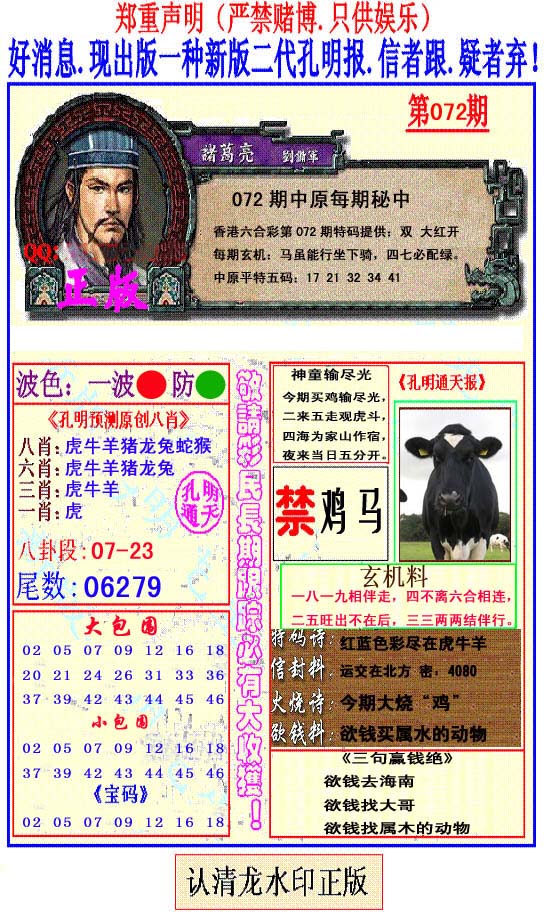 郑重声明（严禁赌博.只供娱乐）
好消息.现出版一种新版二代孔明报.信者跟.疑者弃！
第072期
諸葛亮 劉備軍
072 期中原每期秘中
香港六合彩第 072 期特码提供：双 大红开
每期玄机：马虽能行坐下骑，四七必配绿。
中原平特五码：17 21 32 34 41
QQ：
正版
波色：一波 防
《孔明预测原创八肖》
八肖：虎牛羊猪龙兔蛇猴
六肖：虎牛羊猪龙兔
三肖：虎牛羊
一肖：虎
孔明
通天
八卦段：07-23
尾数：06279
大包围
02 05 07 09 12 16 18
20 21 24 26 31 33 36
37 39 42 43 44 45 46
小包围
02 05 07 09 12 16 18
37 39 42 43 44 45 46
《宝码》
02 05 07 09 12 16 18
敬請彩民長期跟踪必有大收獲！
神童输尽光
今期买鸡输尽光，
二来五走观虎斗，
四海为家山作宿，
夜来当日五分开。
《孔明通天报》
禁鸡马
玄机料
一八一九相伴走，四不离六合相连，
二五旺出不在后，三三两两结伴行。
特码诗：红蓝色彩尽在虎牛羊
信封料：运交在北方 密：4080
火烧诗：今期大烧“鸡”
欲钱料：欲钱买属水的动物
《三句赢钱绝》
欲钱去海南
欲钱找大哥
欲钱找属木的动物
认清龙水印正版